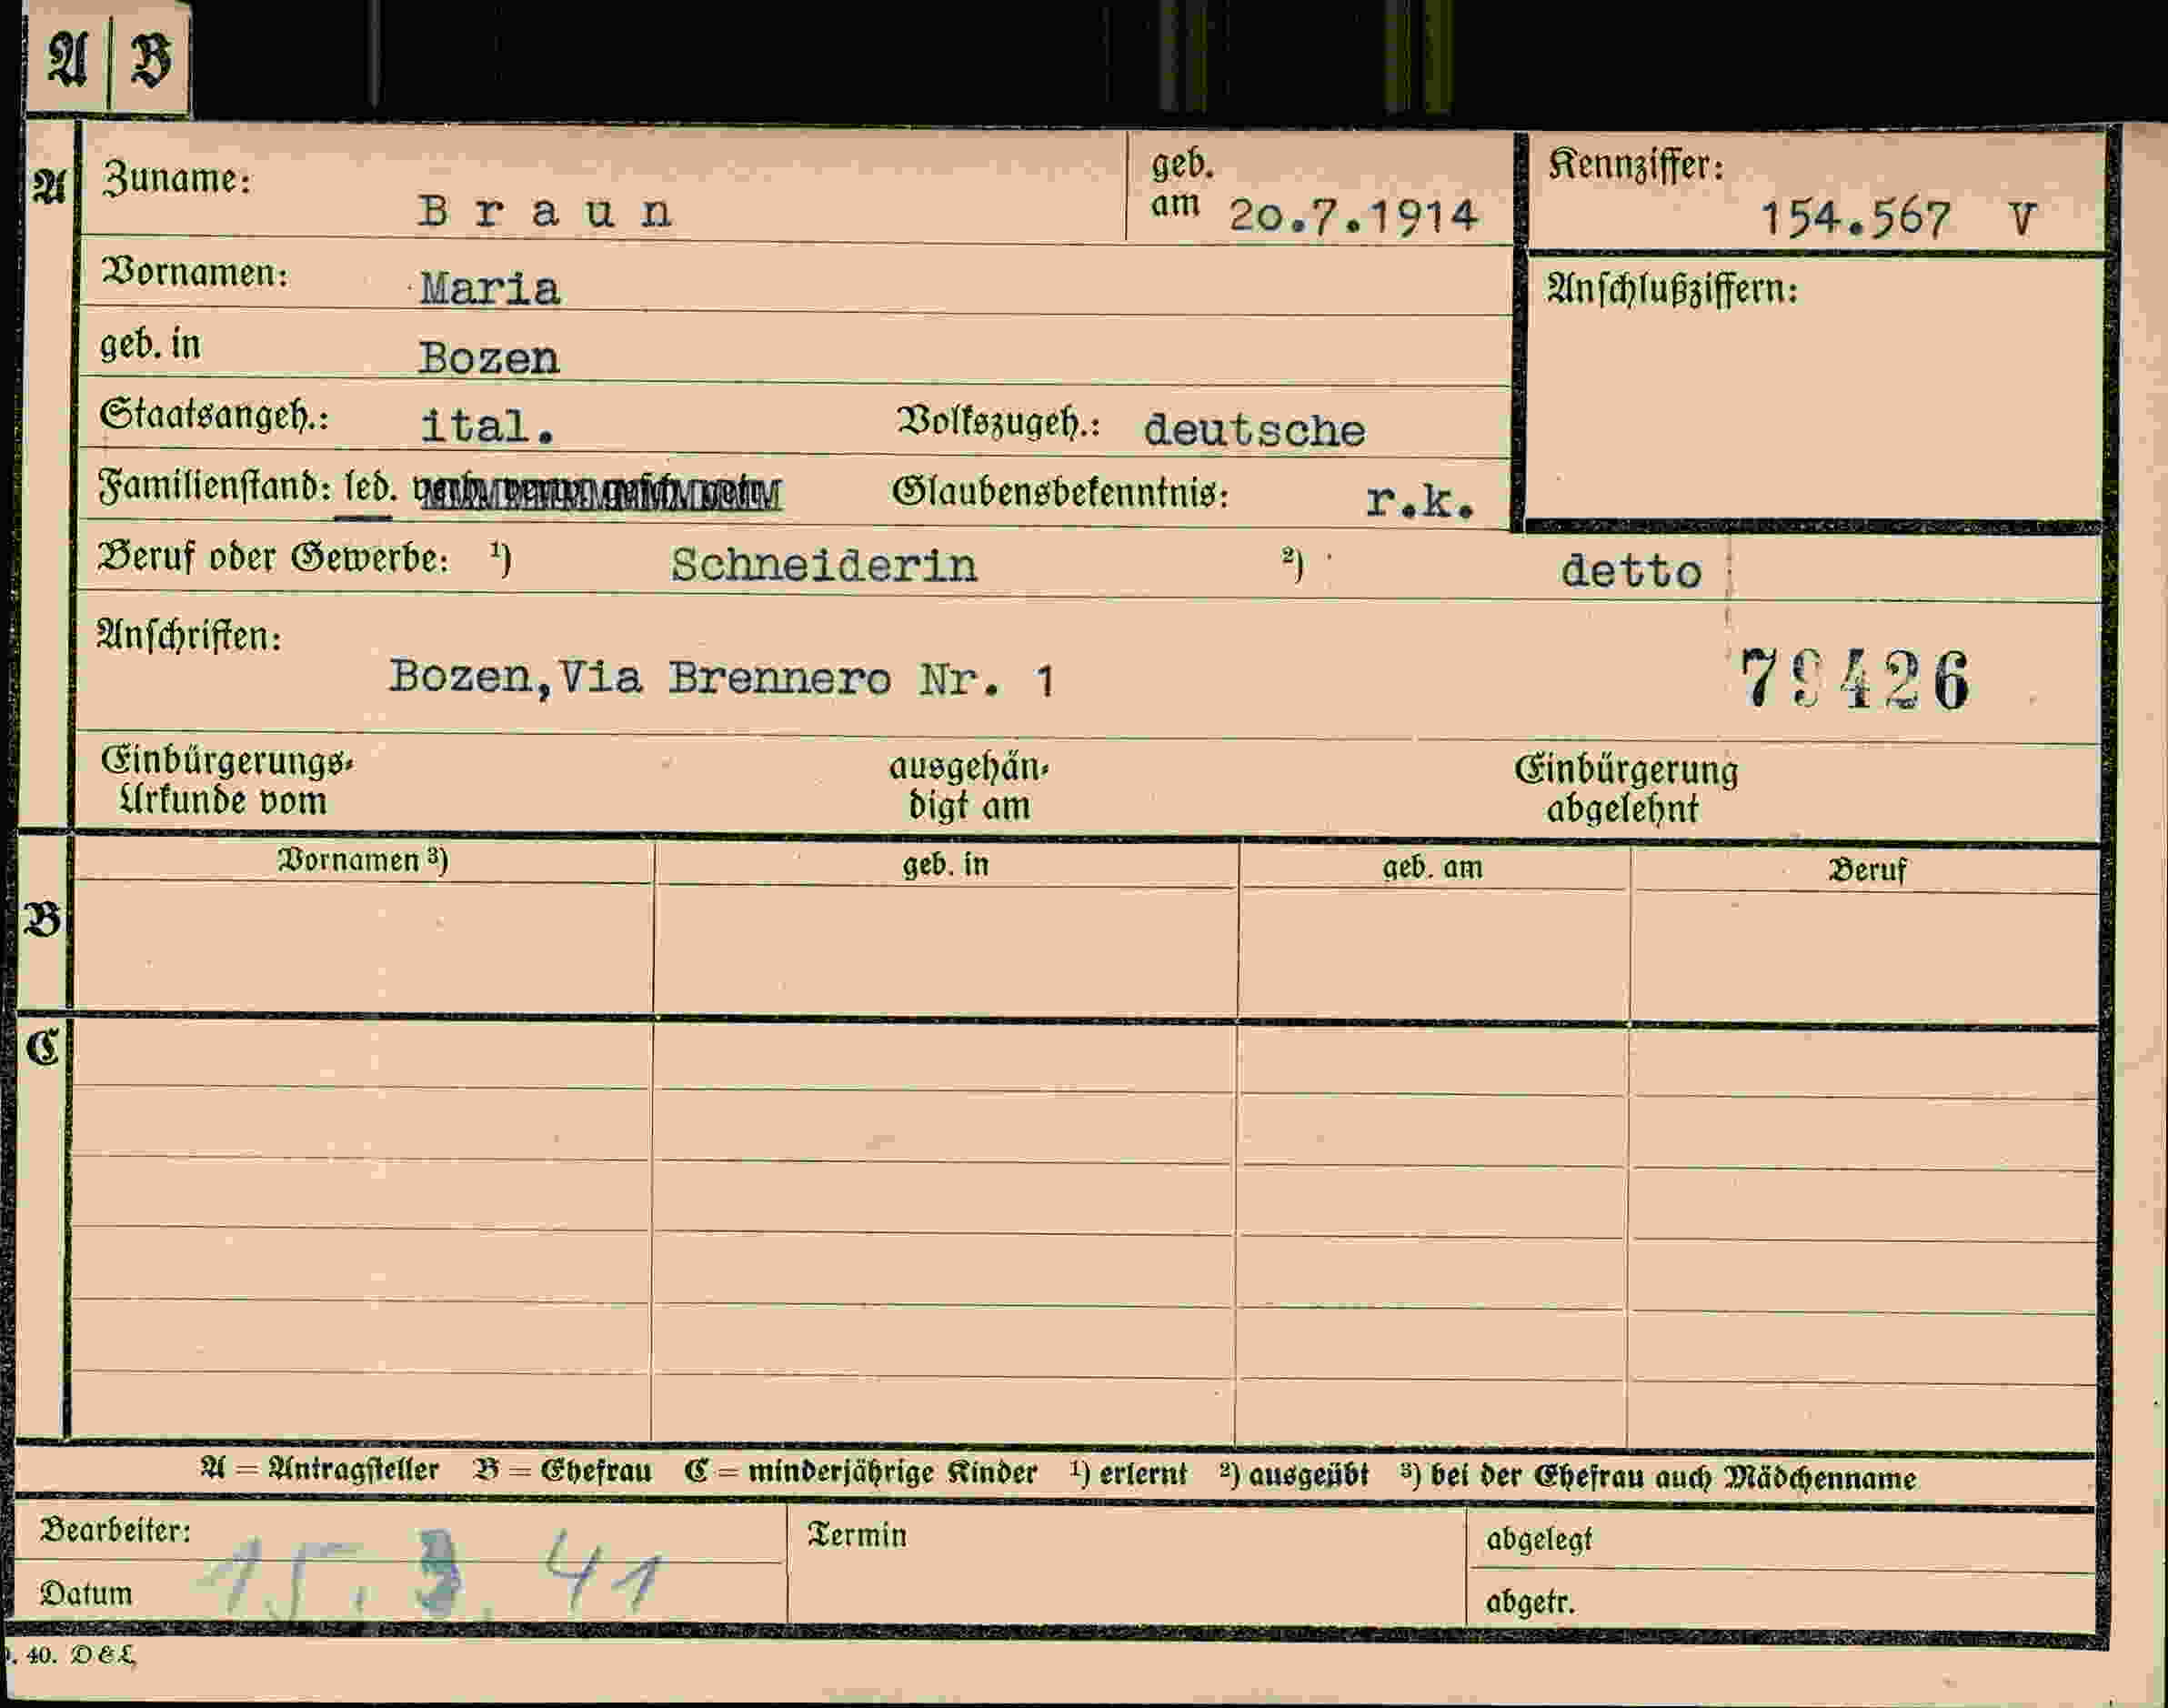 A | B
A
Zuname: Braun
geb. am 20.7.1914
Kennziffer: 154.567 V
Vornamen: Maria
Anschlußziffern:
geb. in Bozen
Staatsangeh.: ital. Volkszugeh.: deutsche
Familienstand: led. Glaubensbekenntnis: r.k.
Beruf oder Gewerbe: ¹) Schneiderin ²) detto
Anschriften:
Bozen,Via Brennero Nr. 1
79426
Einbürgerungs-Urkunde vom ausgehändigt am Einbürgerung abgelehnt
Vornamen ³) geb. in geb. am Beruf
B
C
A = Antragsteller B = Ehefrau C = minderjährige Kinder ¹) erlernt ²) ausgeübt ³) bei der Ehefrau auch Mädchenname
Bearbeiter: Termin abgelegt
Datum 15. 3. 41 abgetr.
. 40. D & L